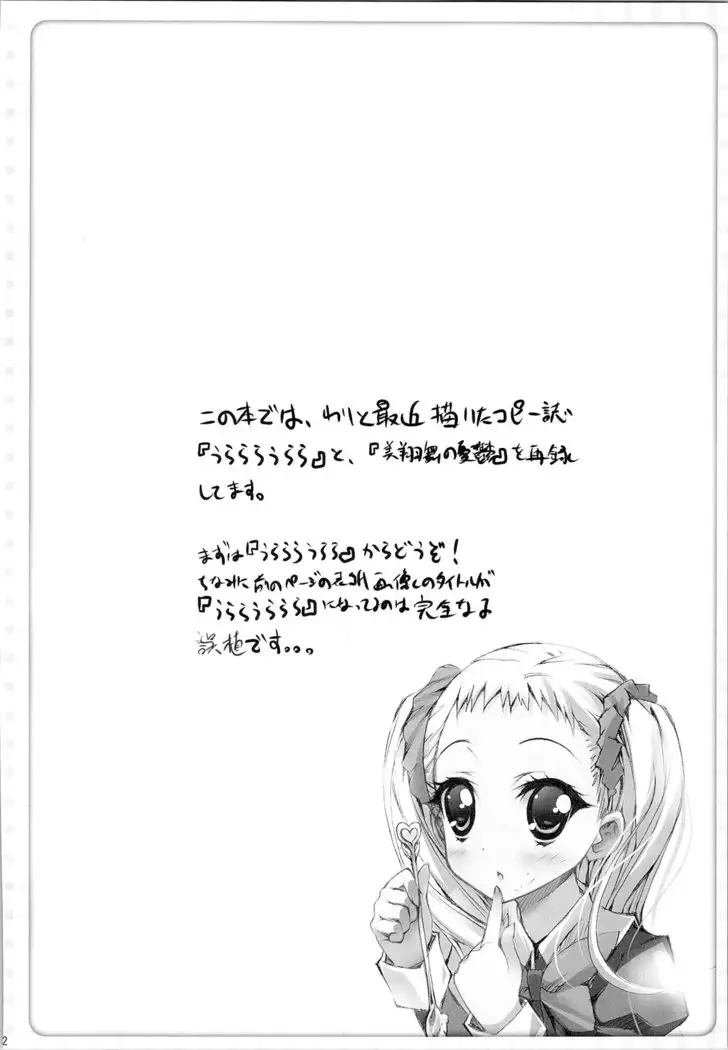 この本では、わりと最近描いたコピー誌
『うららうらら』と、『美翔舞の憂鬱』を再録
してます。
まずは『うららうらら』からどうぞ!
ちなみに前のページの 画像 のタイトルが
『うららうらら』になってるのは完全なる
誤植です。。。
2